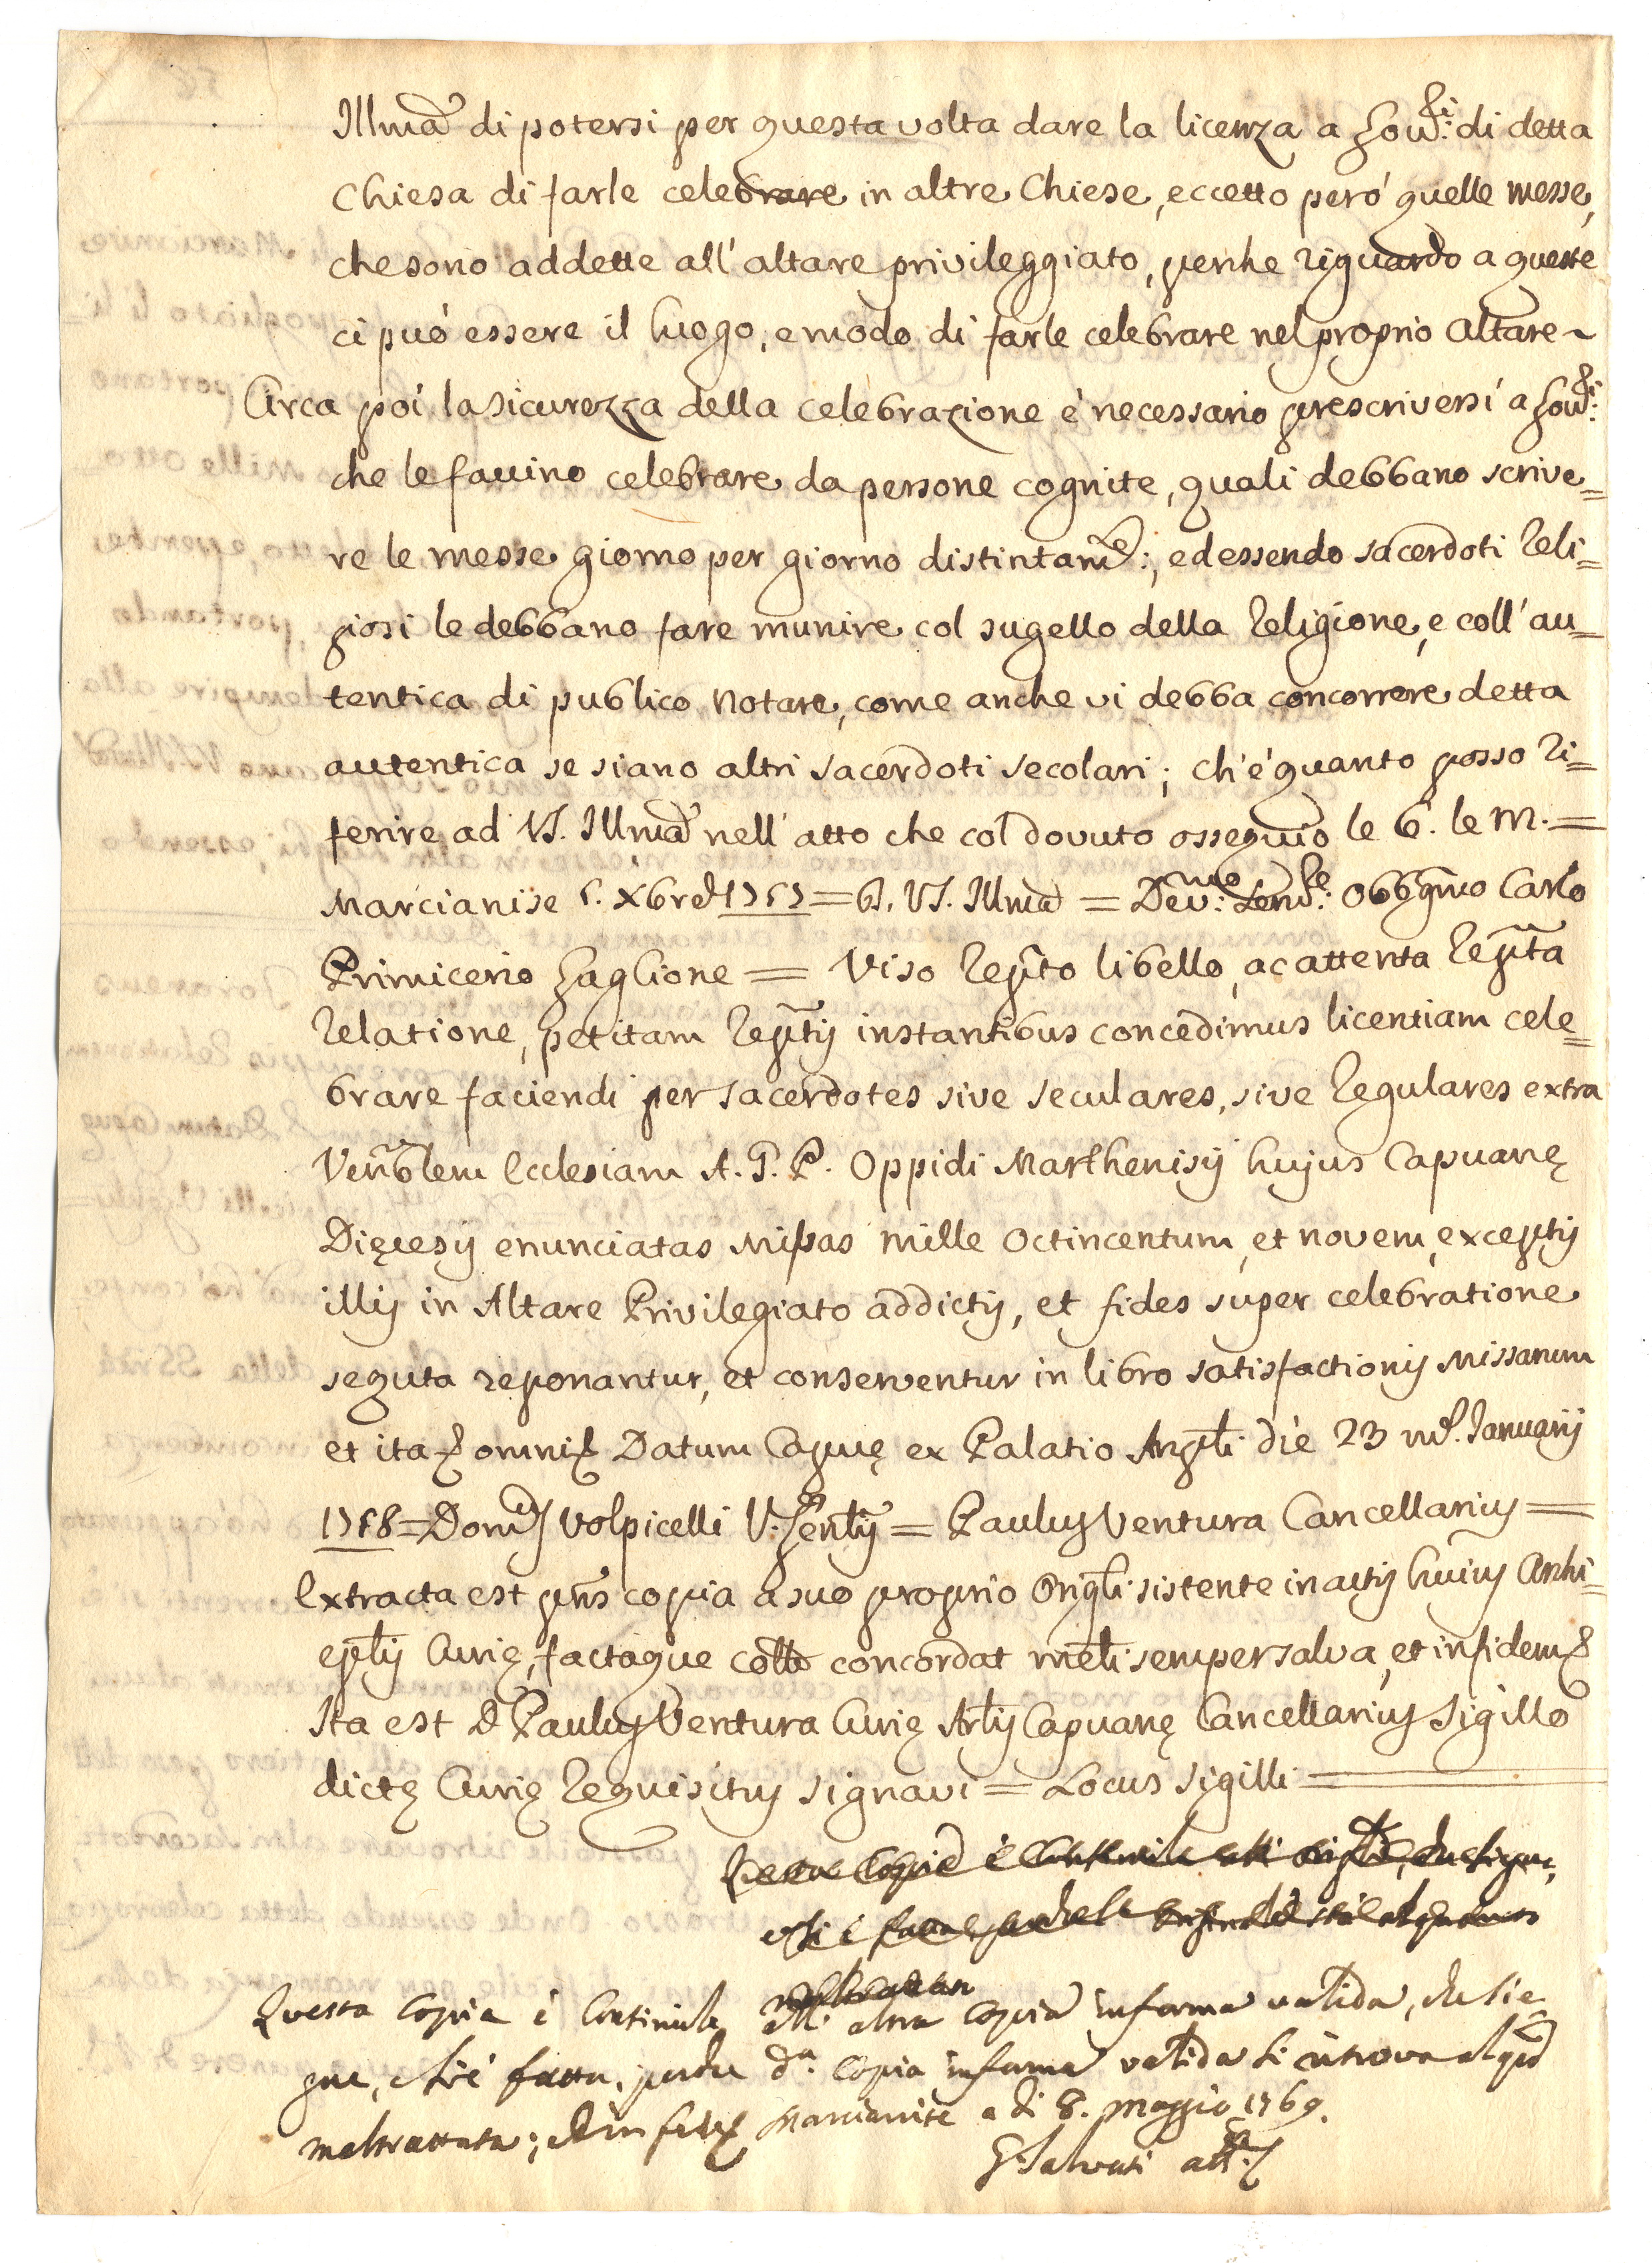 Illma di potersi per questa volta dare la licenza a Gov:ri di detta
Chiesa di farle celebrare in altre Chiese, eccetto però quelle messe,
che sono addette all'altare privileggiato, perche riguardo a queste
ci può essere il luogo, e modo di farle celebrare nel proprio Altare~
Circa poi la sicurezza della celebrazione è necessario prescriversi a Gov:ri
che le faccino celebrare da persone cognite, quali debbano scrive=
re le messe giorno per giorno distintam:e, ed essendo sacerdoti Reli=
giosi le debbano fare munire col sugello della Religione, e coll'au=
tentica di publico Notare, come anche vi debba concorrere detta
autentica se siano altri sacerdoti secolari; ch'è quanto posso ri=
ferire ad VS. Illma nell'atto che col dovuto ossequio le b. le m.=
Marcianise 5. Xbre 1757 = D. VS. Illma = Dev:mo Serv:re Obbgmo Carlo
Primicerio Zaglione = Viso repto libello, ac attenta repta
relatione, petitam reptis instantibus concedimus licentiam cele=
brare faciendi per sacerdotes sive seculares, sive Regulares extra
Venblem Ecclesiam A. G. P. Oppidi Marthenisij hujus Capuanę
Dięcesis enunciatas Missas mille octincentum, et novem, exceptis
illis in Altare Privilegiato addictis, et fides super celebratione
sequta reponantur, et conserventur in libro satisfactionis Missarum
et ita omni Datum Capuę ex Palatio Archpli die 23 m. Januarij
1758 = Domcus Volpicelli V. Genlis = Paulus Ventura Cancellarius =
Extracta est pns copia a suo proprio Origli sistente in actis huius Archi=
eplis Curię, factaque colle concordat meli semper salva, et in fidem
Ita est D. Paulus Ventura Curię Arlis Capuanę Cancellarius Sigillo
dictę Curię requisitus signavi = Locus Sigilli =
Questa Copia è
Questa Copia è Consimile all'altra Copia in forma valida, che sie
gue, e si è fatta, perche da. Copia in forma valida si ritrova alqto
maltrattata; ed in fede Marcianise a dì 8. Maggio 1769.
G. Salvati